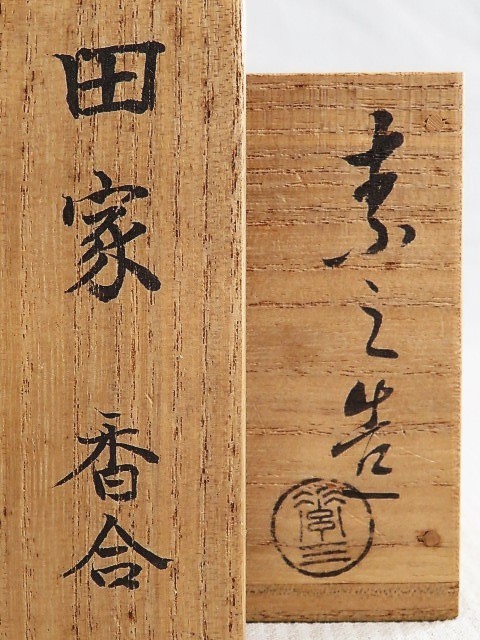 田家 香合
素之造